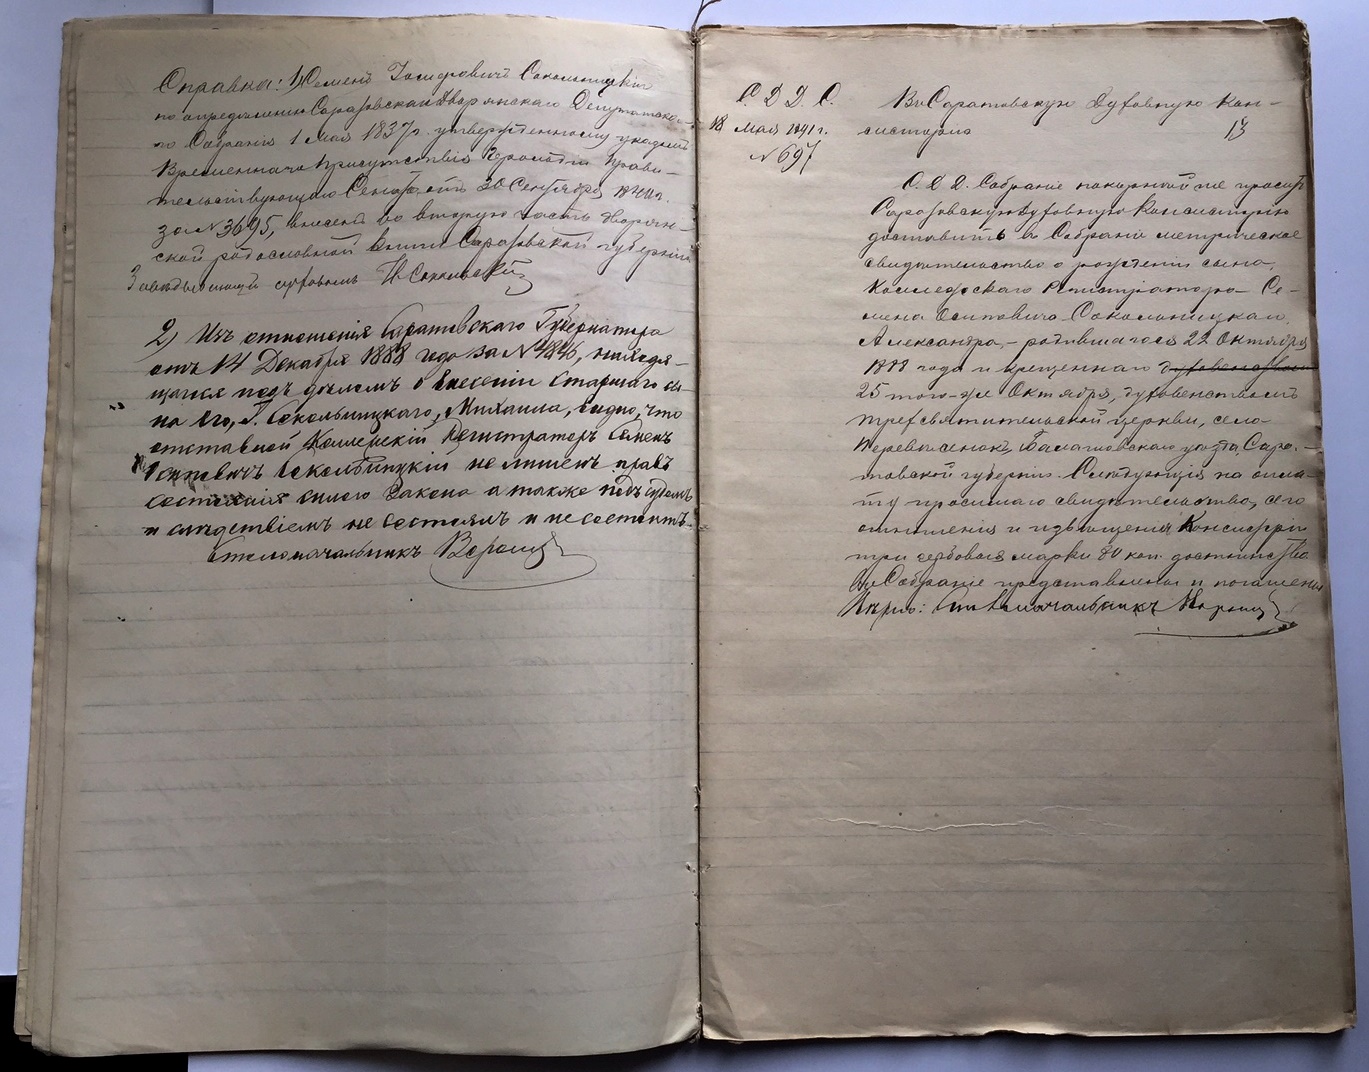 Справка: 1) Семенъ Іосифовичъ Сокольницкій
по опредѣленію Саратовскаго Дворянскаго Депутатска-
го Собранія 1 Мая 1837 г. утвержденному указомъ
Временнаго Присутствія Герольдіи Прави-
тельствующаго Сената отъ 30 Сентября 1840 г.
за № 3695, внесенъ во вторую часть дворян-
ской родословной книги Саратовской губерніи
Завѣдывающій архивомъ
2) Изъ отношенія Саратовскаго Губернатора
отъ 14 Декабря 1888 года за № 4846, находя-
щагося подъ дѣломъ о внесеніи старшаго сы-
на его, Г. Сокольницкаго, Михаила, видно, что
отставной Коллежскій Регистраторъ Семенъ
Осиповичъ Сокольницкій не лишенъ правъ
состоянія силою закона а также подъ судомъ
и слѣдствіемъ не состоялъ и не состоитъ.
Столоначальникъ
С. Д. Д. С.
18 мая 1891 г.
№ 697
Въ Саратовскую Духовную Кон-
систорію
13
С. Д. Д. Собраніе покорнѣйше проситъ
Саратовскую Духовную Консисторію
доставить въ Собраніе метрическое
свидѣтельство о рожденіи сына,
Коллежскаго Регистратора Се-
мена Осиповича Сокольницкаго,
Александра, - родившагося 22 Октября
1888 года и крещеннаго духовенствомъ
25 того-же Октября, духовенствомъ
Трехсвятительской церкви, села
Перевѣсенокъ, Балашовскаго уѣзда Сара-
товской губерніи. Слѣдующія на опла-
ту просимаго свидѣтельства, сего
отношенія и извѣщенія Консисторіи
три гербовыя марки 80 коп. достоинства
въ Собраніе представлены и погашены
Вѣрно: Столоначальникъ